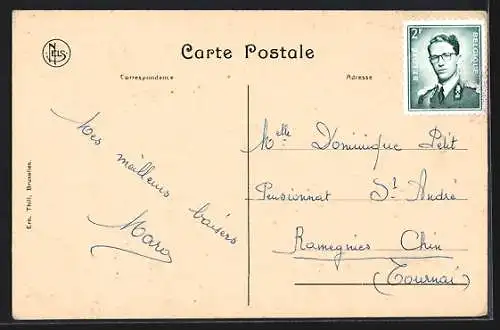 NELS
Carte Postale
Correspondance
Adresse
2F
BELGIE-BELGIQUE
Mes meilleurs baisers
Marc
Melle Dominique Petit
Pensionnat St André
Ramegnies Chin
(Tournai)
Ern. Thill, Bruxelles.